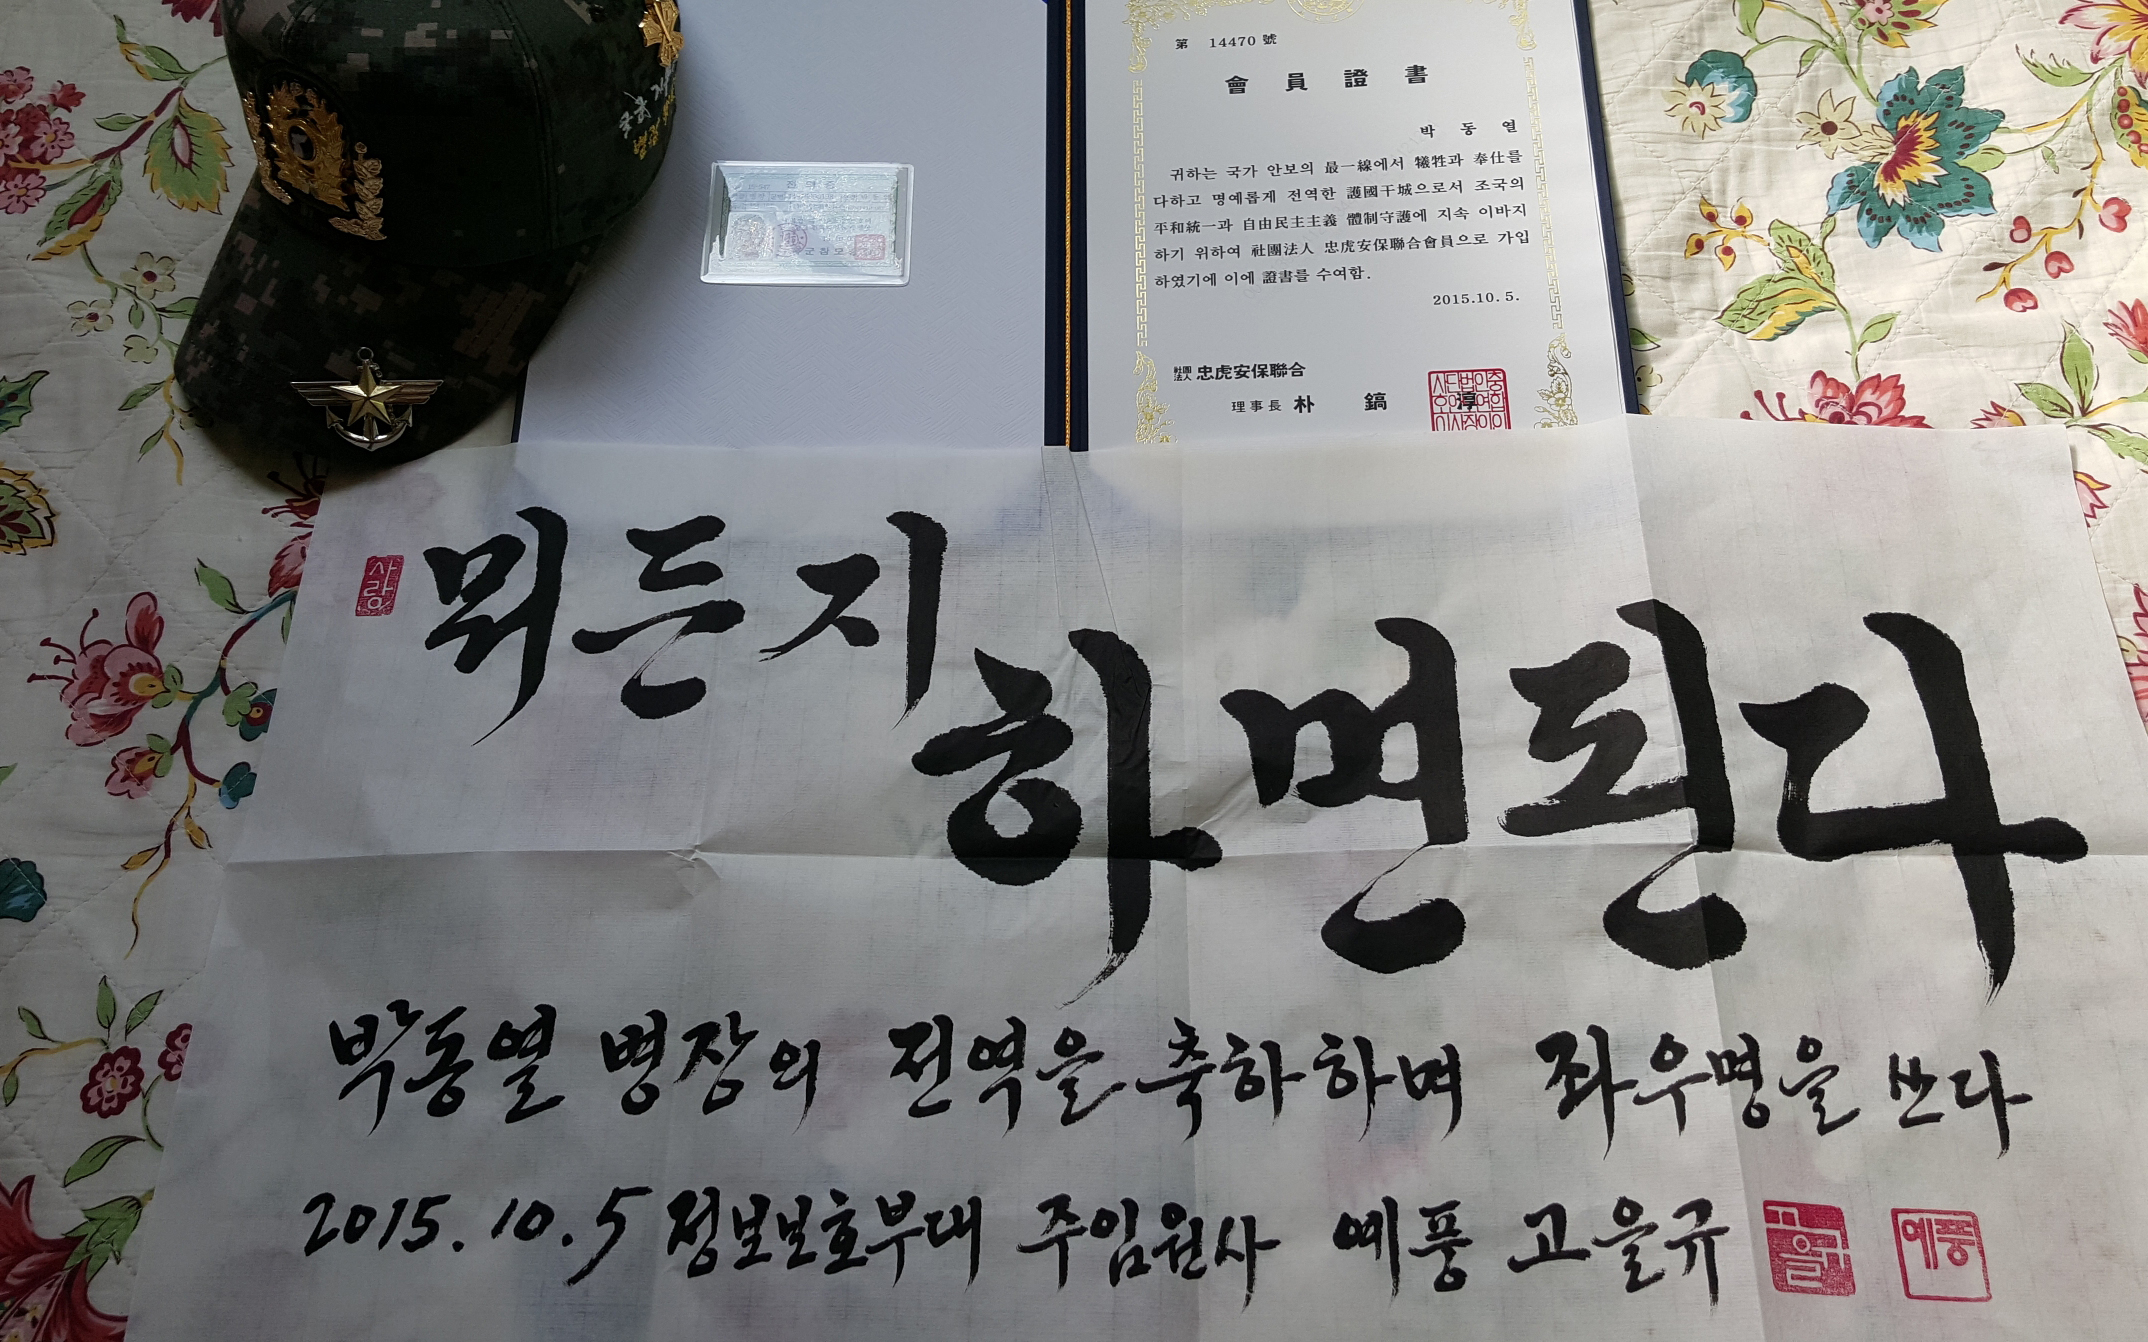 第 14470 號
會員證書
박동열
귀하는 국가 안보의 最一線에서 犧牲과 奉仕를
다하고 명예롭게 전역한 護國干城으로서 조국의
平和統一과 自由民主主義 體制守護에 지속 이바지
하기 위하여 社團法人 忠虎安保聯合會員으로 가입
하였기에 이에 證書를 수여함.
2015.10.5.
社團法人 忠虎安保聯合
理事長 朴鎬淳
사랑
뭐든지
하면된다
박동열 병장의 전역을 축하하며 좌우명을 쓰다
2015.10.5 정보보호부대 주임원사 예풍 고을규
고을규
예풍